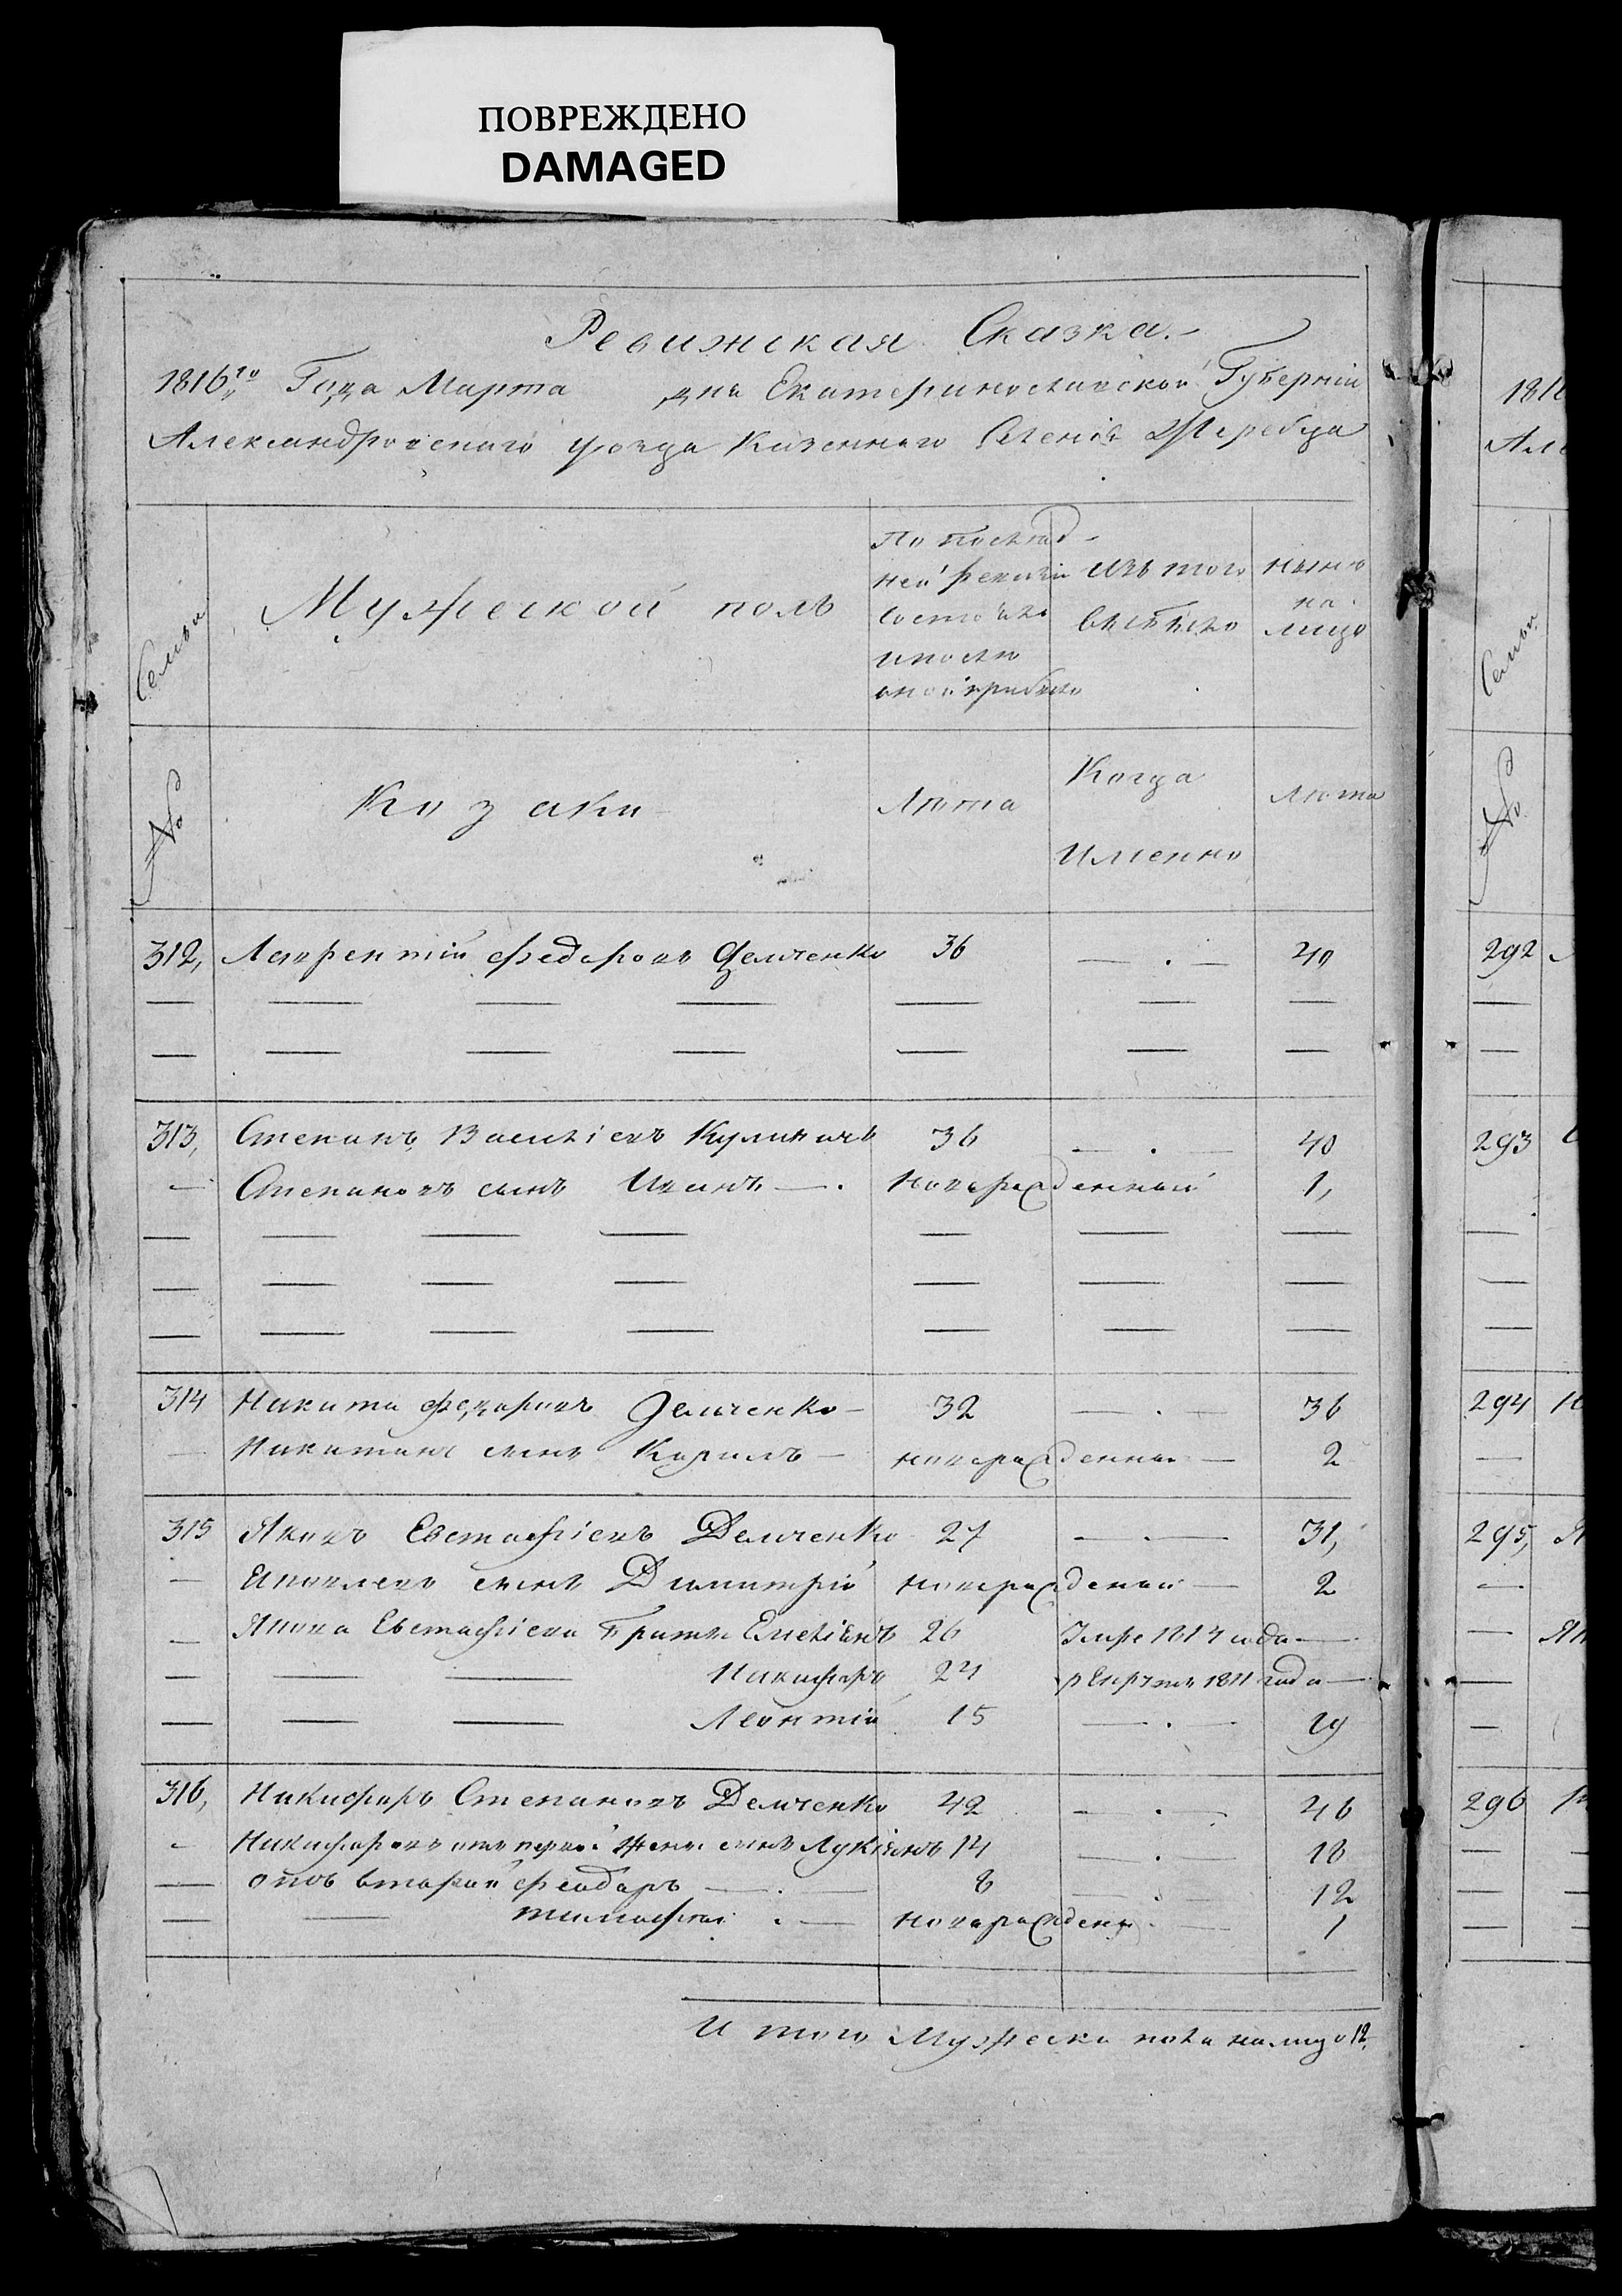 ПОВРЕЖДЕНО
DAMAGED
Ревижская Сказка.
1816го Года Марта дня Екатеринославской Губерніи
Александровскаго уезда Казеннаго Селенія Жеребца
Семьи
Мужеской полъ
По послед-
ней ревизіи
состояло
и после
оной прибыло
Изъ того
выбыло
ныне
на
лицо
№
Козаки
Лѣта
Когда
Именно
Лѣта
312, Лаврентій Федоровъ Демченко 36 — . — 40
313, Степанъ Васильевъ Кулиничъ 36 — . — 40
— Степановъ сынъ Иванъ — . новорожденный 1,
314 Никита Федоровъ Демченко — 32 — . — 36
— Никитинъ сынъ Кирилъ — новорожденны — 2
315 Яковъ Евстафіевъ Демченко 27 — . — 31,
— Яковлевъ сынъ Димитрій новорожденый — 2
— Якова Евстафіева братья Емеліянъ 26 Умре 1814 года —
— Никифоръ 24 1811 года —
— Леонтій 15 — . — 19
316, Никифоръ Степановъ Демченко 42 — . — 46
— Никифоровъ отъ первой жены сынъ Лукіянъ 14 — . — 18
— отъ второй Феодоръ — . — 8 — . — 12
— Тимофей . — новорожденъ . — 1
И того Мужеска пола налицо 12.
1816
Але
Семьи
№
292
293
294 Н
295, Я
— Як
296